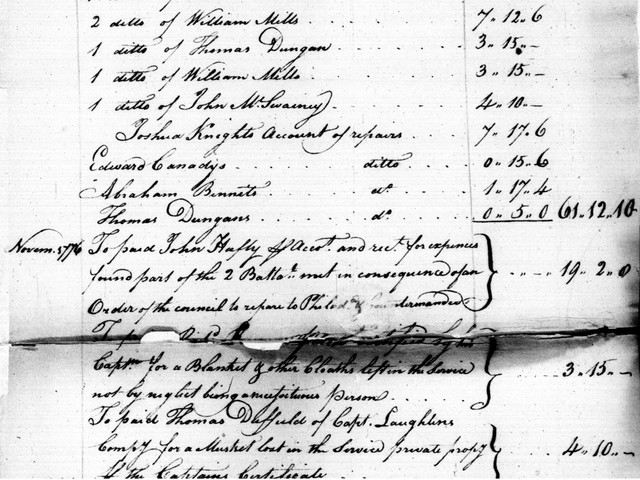 2 ditto of William Mills . . . . 7 " 12 " 6
1 ditto of Thomas Dungan . . . . 3 " 15 " -
1 ditto of William Mills . . . . 3 " 15 " -
1 ditto of John McSwainey . . . . 4 " 10 " -
Joshua Knights Account of repairs . . . 7 " 17 " 6
Edward Canadys ditto . . . . 0 " 15 " 6
Abraham Bennets do . . . . 1 " 17 " 4
Thomas Dungans do . . . . 0 " 5 " 0 61 " 12 " 10
Novem. 1776 To paid John Hafly Accot. and rect. for expences
found part of the 2 Battn. met in consequence of an . . . 19 " 2 " 0
Order of the council to repare to Philad
To
Captn. for a Blanket & other Cloaths left in the Service 3 " 15 " -
not by neglict being person
To paid Thomas Duffield of Capt. Laughlins
Compy. for a Musket lost in the Service private propy. 4 " 10 " -
the Captains Certificate